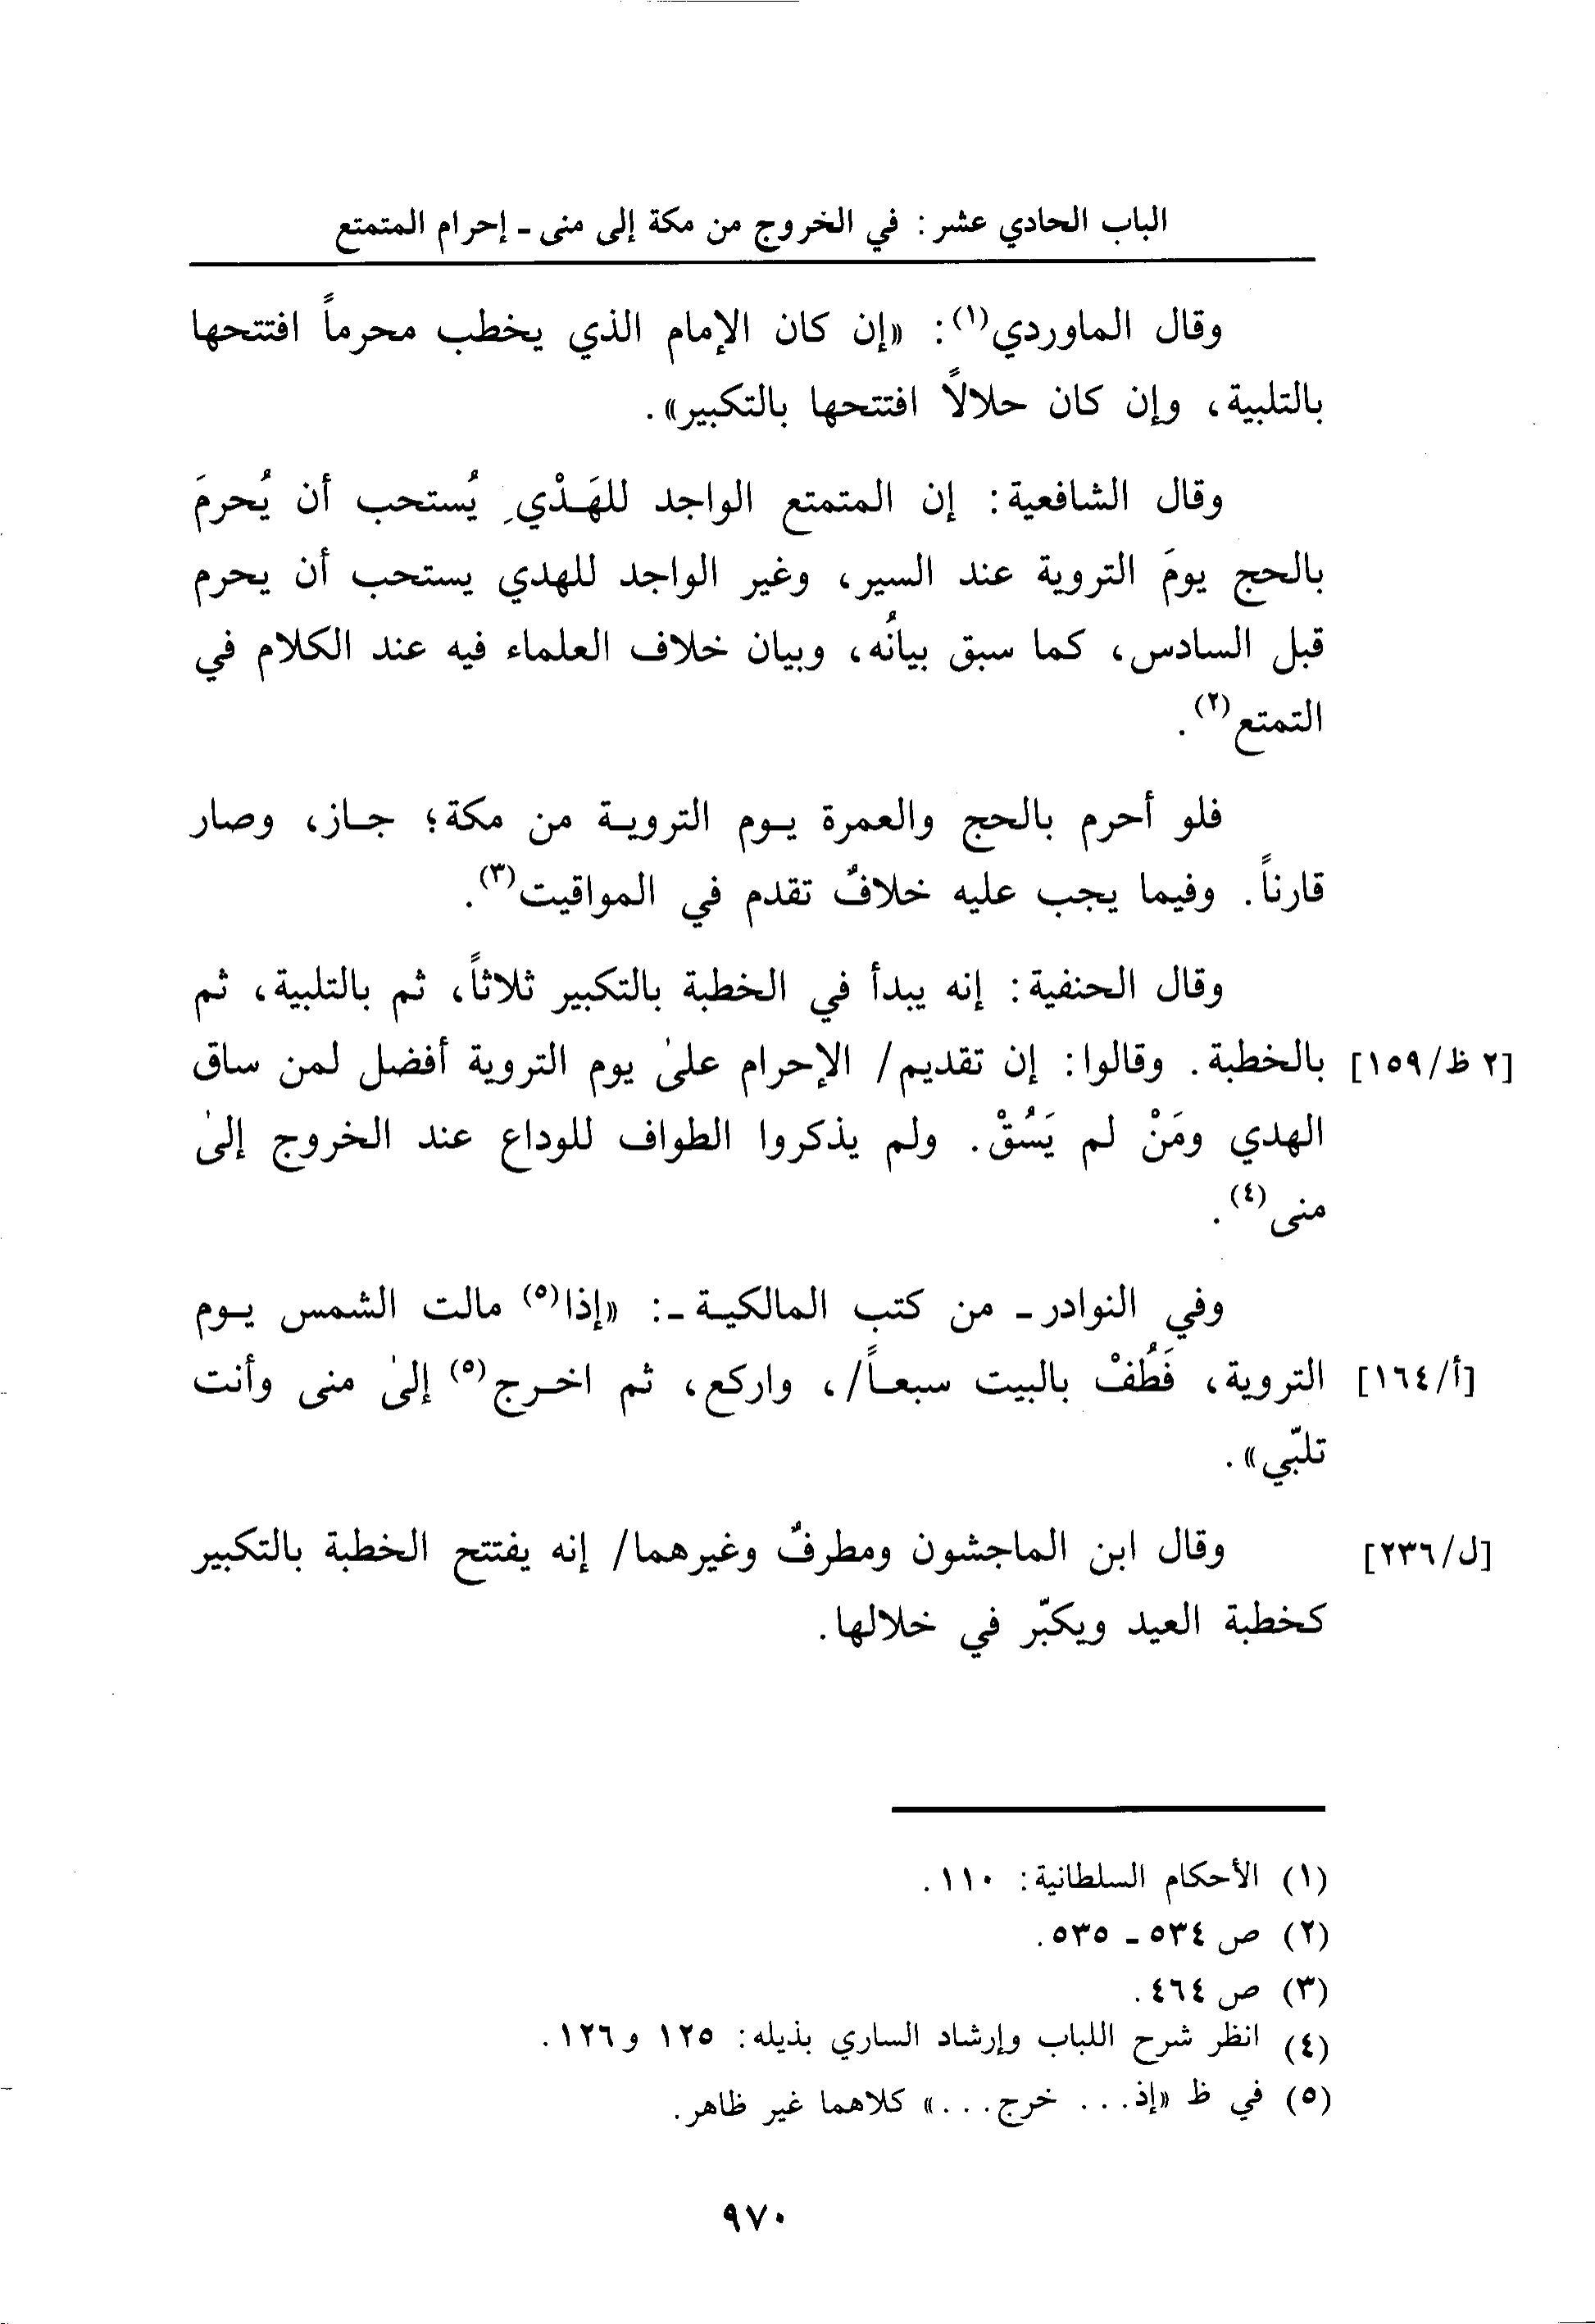 الباب الحادي عشر: في الخروج من مكة إلى منى - إحرام المتمتع
وقال الماوردي(١): «إن كان الإمام الذي يخطب محرماً افتتحها
بالتلبية، وإن كان حلالاً افتتحها بالتكبير».
وقال الشافعية: إن المتمتع الواجد للهَدْيِ يُستحب أن يُحرمَ
بالحج يومَ التروية عند السير، وغير الواجد للهدي يستحب أن يحرم
قبل السادس، كما سبق بيانُه، وبيان خلاف العلماء فيه عند الكلام في
التمتع(٢).
فلو أحرم بالحج والعمرة يـوم الترويـة من مكة؛ جـاز، وصار
قارناً. وفيما يجب عليه خلافٌ تقدم في المواقيت(٣).
وقال الحنفية: إنه يبدأ في الخطبة بالتكبير ثلاثاً، ثم بالتلبية، ثم
[٢ ظ/١٥٩] بالخطبة. وقالوا: إن تقديم/ الإحرام علىٰ يوم التروية أفضل لمن ساق
الهدي ومَنْ لم يَسُقْ. ولم يذكروا الطواف للوداع عند الخروج إلىٰ
منى(٤).
وفي النوادر - من كتب المالكيـة -: «إذا(٥) مالت الشمس يـوم
[أ/١٦٤] التروية، فَطُفْ بالبيت سبعـاً/، واركع، ثم اخـرج(٥) إلىٰ منى وأنت
تلبّي».
[ل/٢٣٦] وقال ابن الماجشون ومطرفٌ وغيرهما/ إنه يفتتح الخطبة بالتكبير
كخطبة العيد ويكبّر في خلالها.
(١) الأحكام السلطانية: ١١٠.
(٢) ص ٥٣٤ - ٥٣٥.
(٣) ص ٤٦٤.
(٤) انظر شرح اللباب وإرشاد الساري بذيله: ١٢٥ و١٢٦.
(٥) في ظ «إذ... خرج...» كلاهما غير ظاهر.
٩٧٠